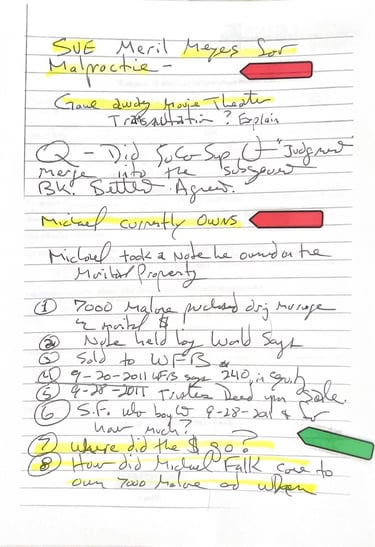 SUE Meril Meyes for
Malproctie -
Gave away Movie Theater
? Explain
Q - Did SoCoSup Ct "Judgment
merge into the "subsequent
BK. Settle Agree.
Michael currently owns
Michael took a Note he owned on the
Marital Property
① 7000 Malone purchased drg marriage
w marital $
② Note held by World Savgs
③ Sold to WFB
④ 9-20-2011 WFB says $240, in equity
⑤ 9-28-2011 Trustee Deed upon Sale.
⑥ S.F. who bought 9-28-2011 & for
how much?
⑦ Where did the $ go?
⑧ How did Michael Falk come to
own 7000 Malone and when